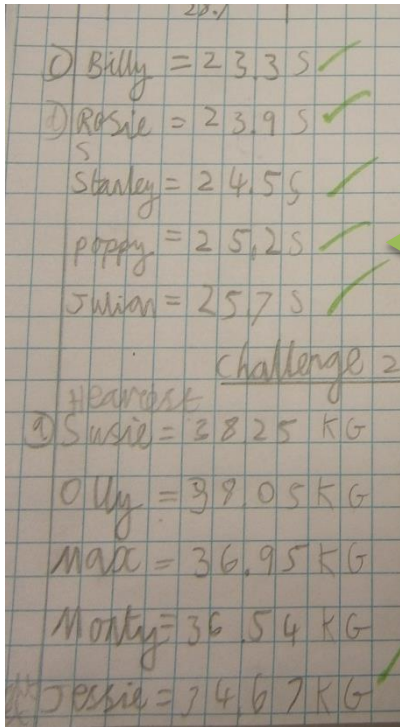 c) Billy = 23.3 S
d) Rosie = 23.9 S
S
Stanley = 24.5 S
poppy = 25.2 S
Julian = 25.7 S
Challenge 2
Heaviest
1) Susie = 38.25 KG
Olly = 38.05 KG
Max = 36.95 KG
Monty = 36.54 KG
Jessie = 34.67 KG